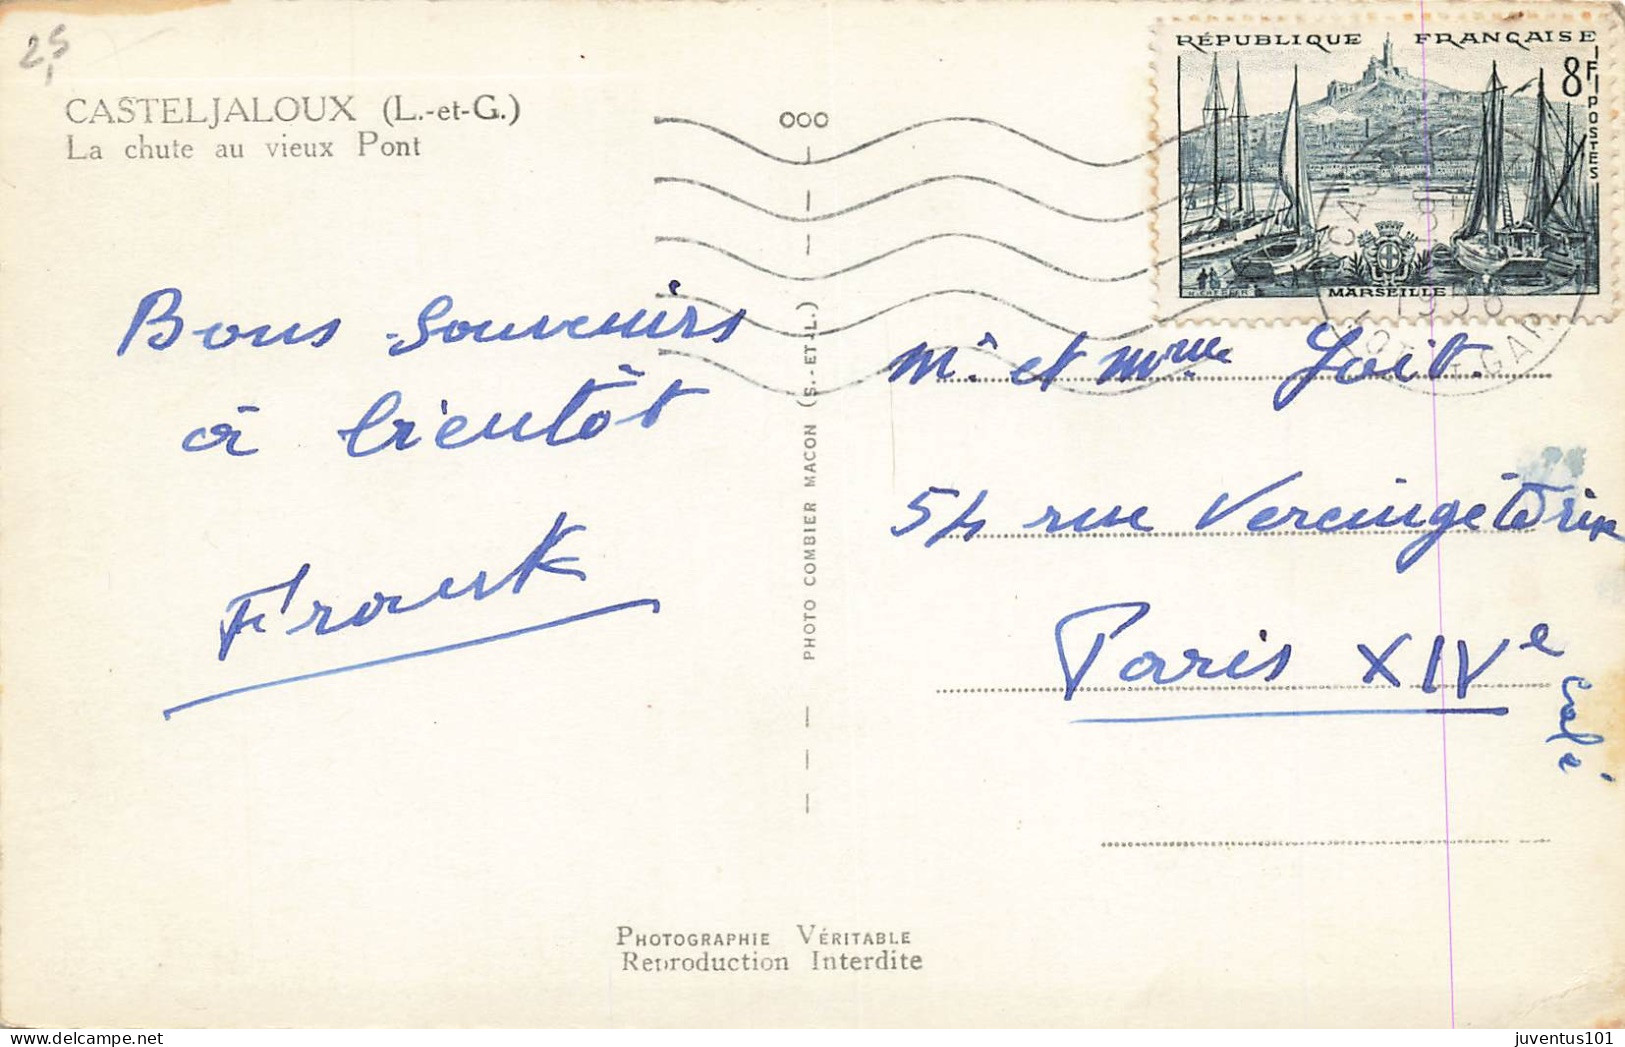 2,5
CASTELJALOUX (L.-et-G.)
La chute au vieux Pont
000
RÉPUBLIQUE FRANÇAISE
8F
POSTES
MARSEILLE
LOT-ET-GAR.
Bons souvenirs
à bientôt
Franck
PHOTO COMBIER MACON (S.-ET-L.)
Mr et Mme
54 rue Vercingétorix
Paris XIVe
Café
PHOTOGRAPHIE VÉRITABLE
Reproduction Interdite
juventus101